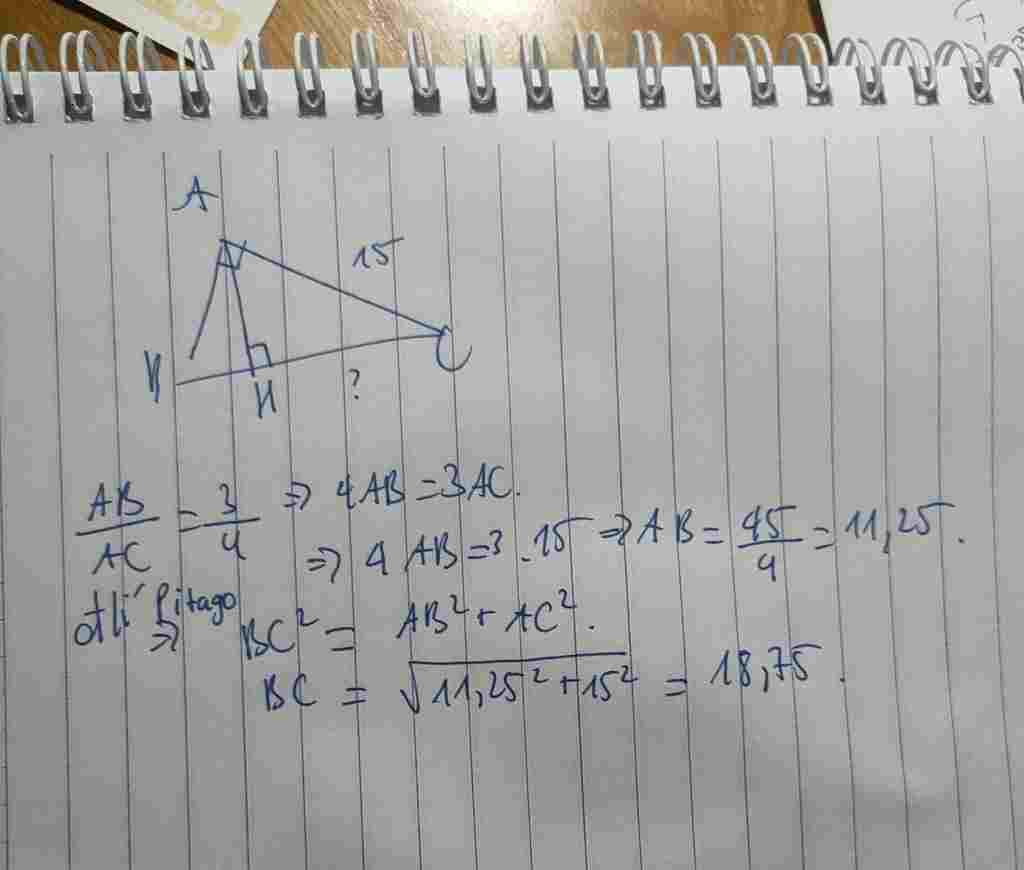 A
15
B
H
?
C
AB/AC = 3/4 => 4AB = 3AC.
=> 4 AB = 3 . 15 => AB = 45/4 = 11,25.
đlí Pitago
=> BC² = AB² + AC².
BC = √(11,25² + 15²) = 18,75.